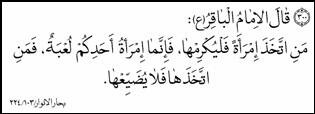 (٣٠٠) قالَ الاِمامُ الْباقِرُ(ع):
مَنِ اتَّخَذَ اِمْرَأَةً فَلْيُكْرِمْها، فَإِنَّما اِمْرَأَةُ اَحَدِكُمْ لُعْبَةٌ، فَمَنِ
اتَّخَذَها فَلا يُضَيِّعْها.
بحارالانوار/١٠٣/٢٢٤